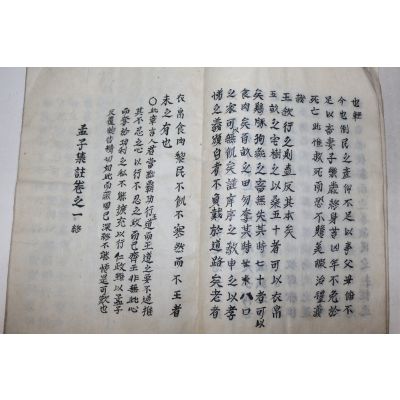 也輕
今也制民之産仰不足以事父母俯不
足以畜妻子樂歲終身苦凶年不免於
死亡此惟救死而恐不贍奚暇治禮義
哉
王欲行之則盍反其本矣
五畝之宅樹之以桑五十者可以衣帛
矣雞豚狗彘之畜無失其時七十者可以
食肉矣百畝之田勿奪其時八口
之家可以無飢矣謹庠序之敎申之以孝
悌之義頒白者不負戴於道路矣老者
衣帛食肉黎民不飢不寒然而不王者
未之有也
○此章言人君當黜霸功行王道而王道之要不過推
其不忍之心以行不忍之政而已齊王非無此心
而奪於功利之私不能擴充以行仁政雖以孟子
反覆曉告精切如此而蔽固已深終不能悟是可歎也
孟子集註卷之一 終